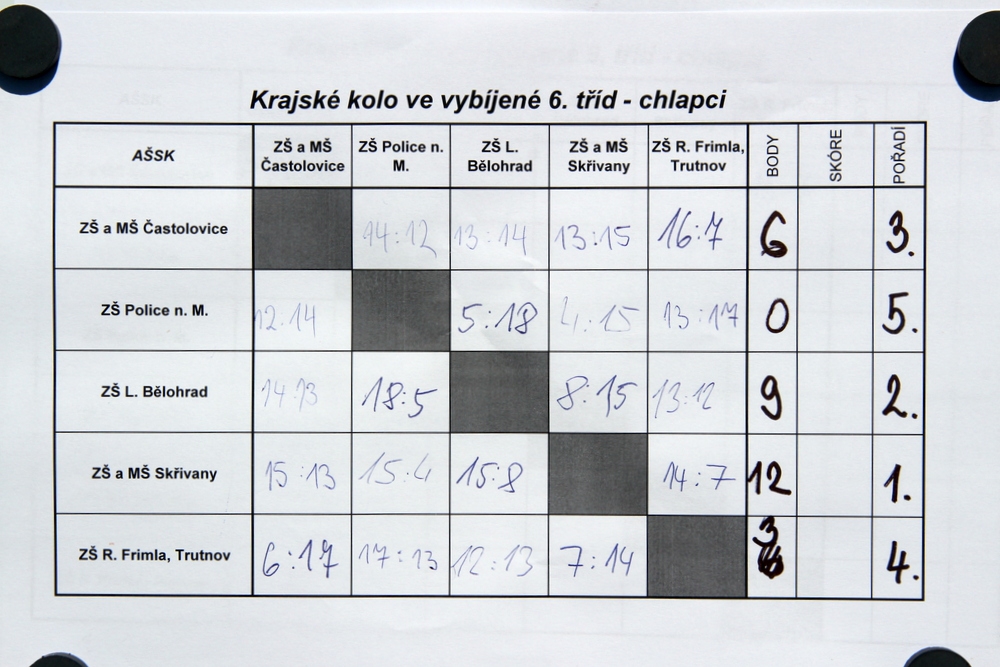 Krajské kolo ve vybíjené 6. tříd - chlapci
AŠSK
ZŠ a MŠ
Častolovice
ZŠ Police n.
M.
ZŠ L.
Bělohrad
ZŠ a MŠ
Skřivany
ZŠ R. Frimla,
Trutnov
BODY
SKÓRE
POŘADÍ
ZŠ a MŠ Častolovice 14:12 13:14 13:15 16:7 6 3.
ZŠ Police n. M. 12:14 5:18 4:15 13:17 0 5.
ZŠ L. Bělohrad 14:13 18:5 8:15 13:12 9 2.
ZŠ a MŠ Skřivany 15:13 15:4 15:8 14:7 12 1.
ZŠ R. Frimla, Trutnov 6:17 17:13 12:13 7:14 3 4.